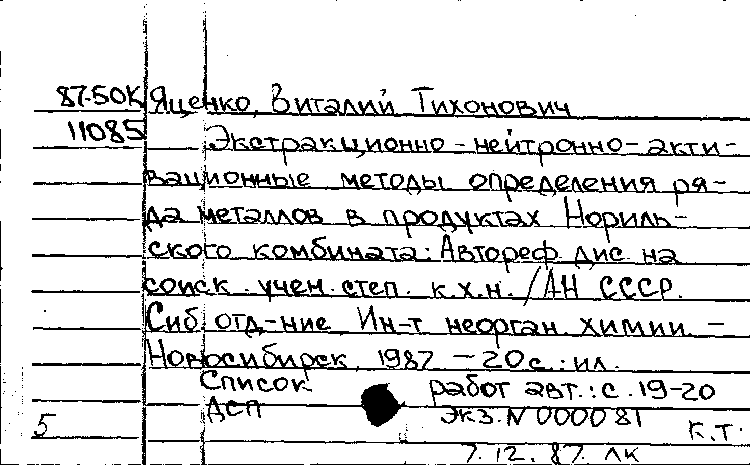 87-50К Яценко, Виталий Тихонович
11085 Экстракционно-нейтронно-акти-
вационные методы определения ря-
да металлов в продуктах Нориль-
ского комбината: Автореф дис на
соиск. учен. степ. к.х.н. / АН СССР.
Сиб. отд-ние, Ин-т неорган. химии. -
Новосибирск, 1987 - 20 с.: ил.
Список работ авт.: с. 19-20
ДСП Экз. N 000081
5 К.Т.
7.12.87. ЛК